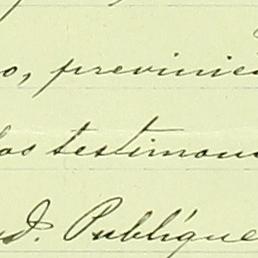 o, previnie
los testimon
d. Publíque